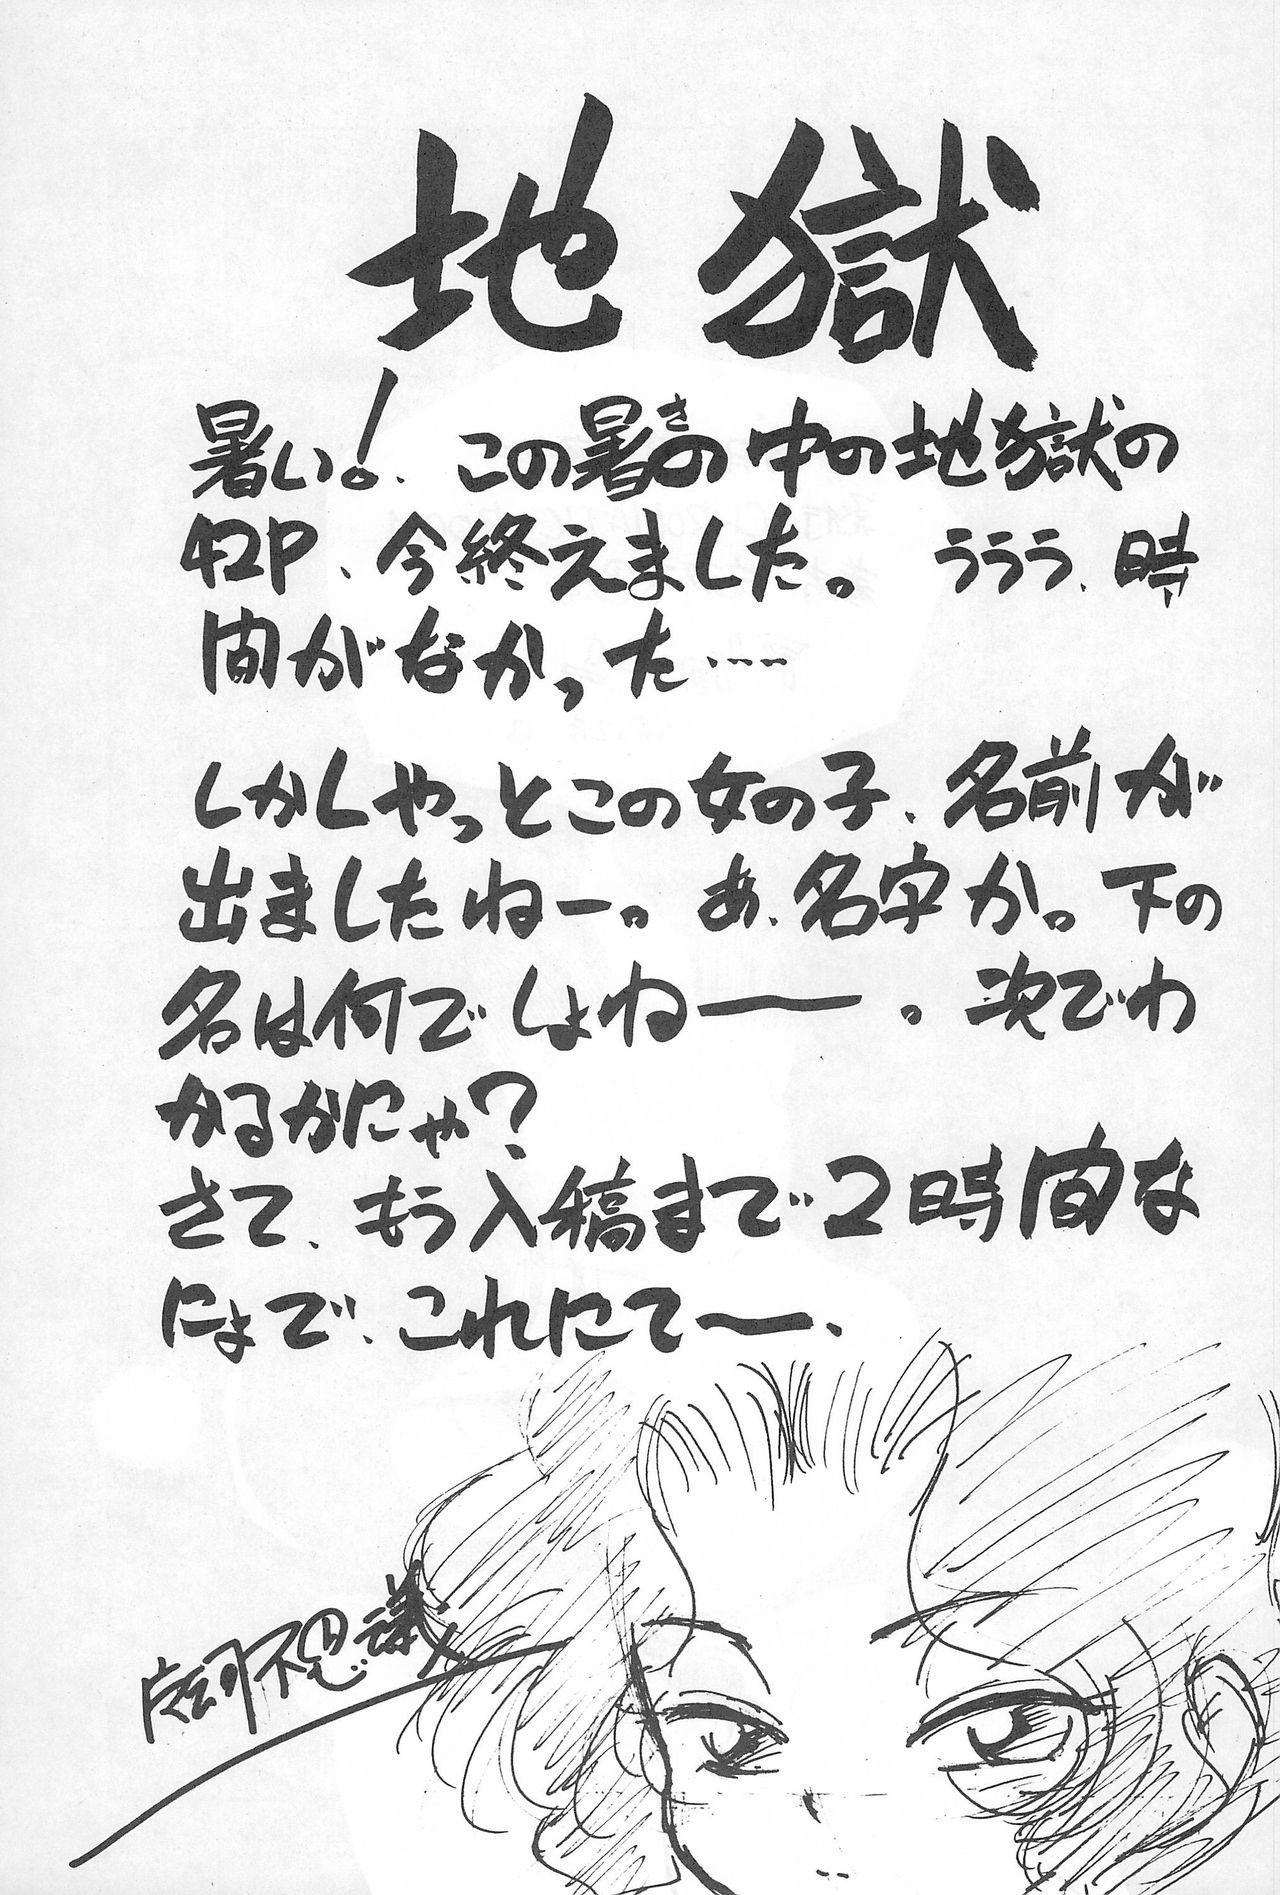 地獄
暑い!、この暑さの中の地獄の
42P、今終えました。ううう、時
間がなかった……
しかしやっとこの女の子、名前が
出ましたねー。あ、名字か。下の
名は何でしょねー。次でわ
かるかにゃ?
さて、もう入稿まで2時間な
にょで、これにてー、
不思議